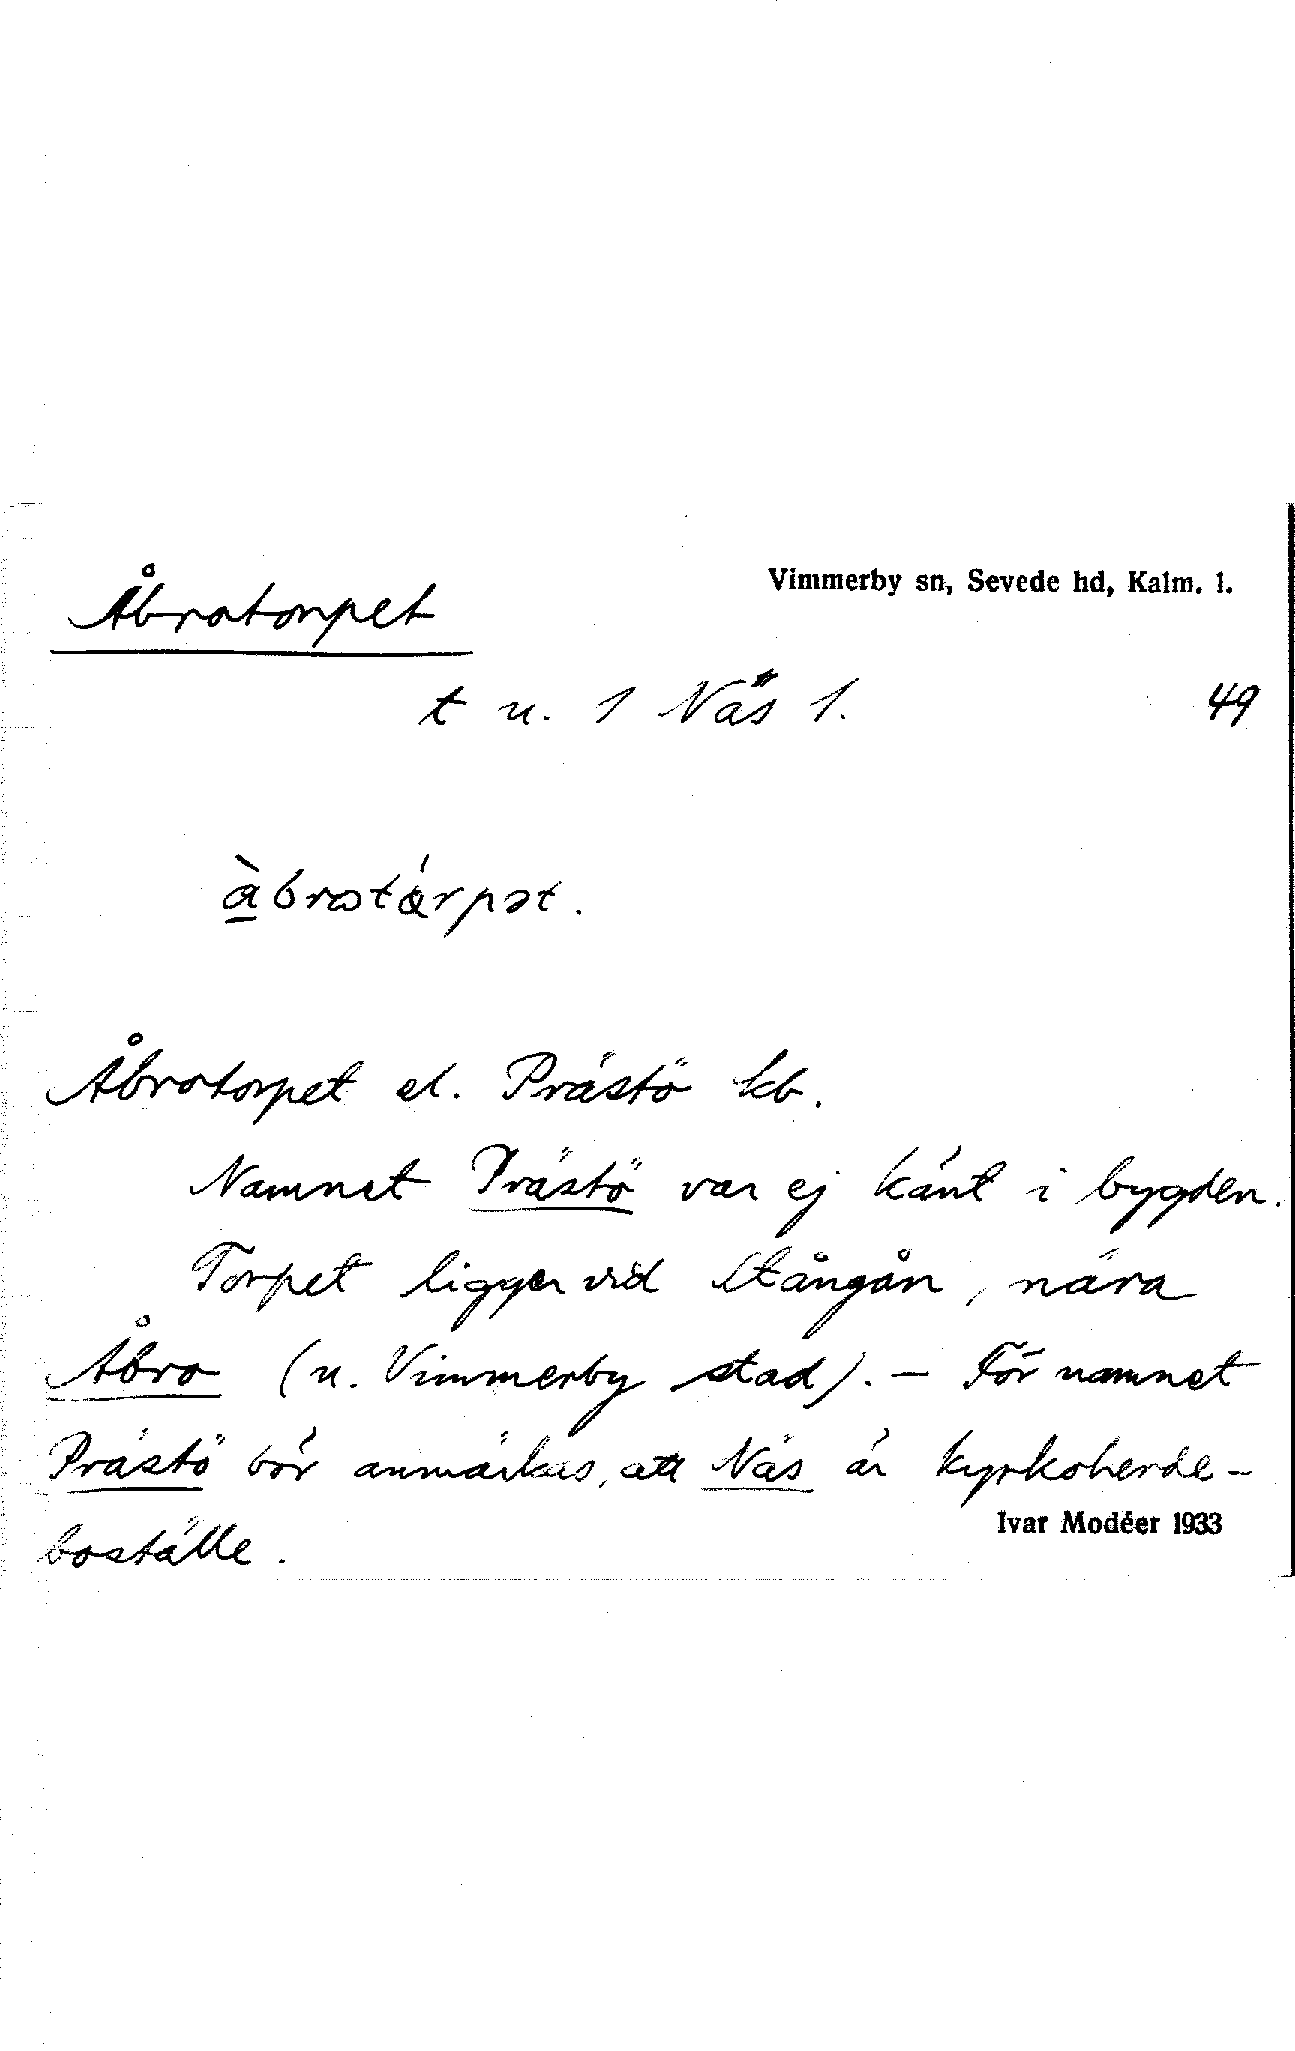 Åbrotorpet
Vimmerby sn, Sevede hd, Kalm. l.
t u. 1 Näs 1.
49
Åbrotorpet el. Prästö kb.
Namnet Prästö var ej känt i bygden.
Torpet ligger vid Stångån, nära
Åbro (u. Vimmerby stad). – För namnet
Prästö bör anmärkas, att Näs är kyrkoherde-
boställe.
Ivar Modéer 1933